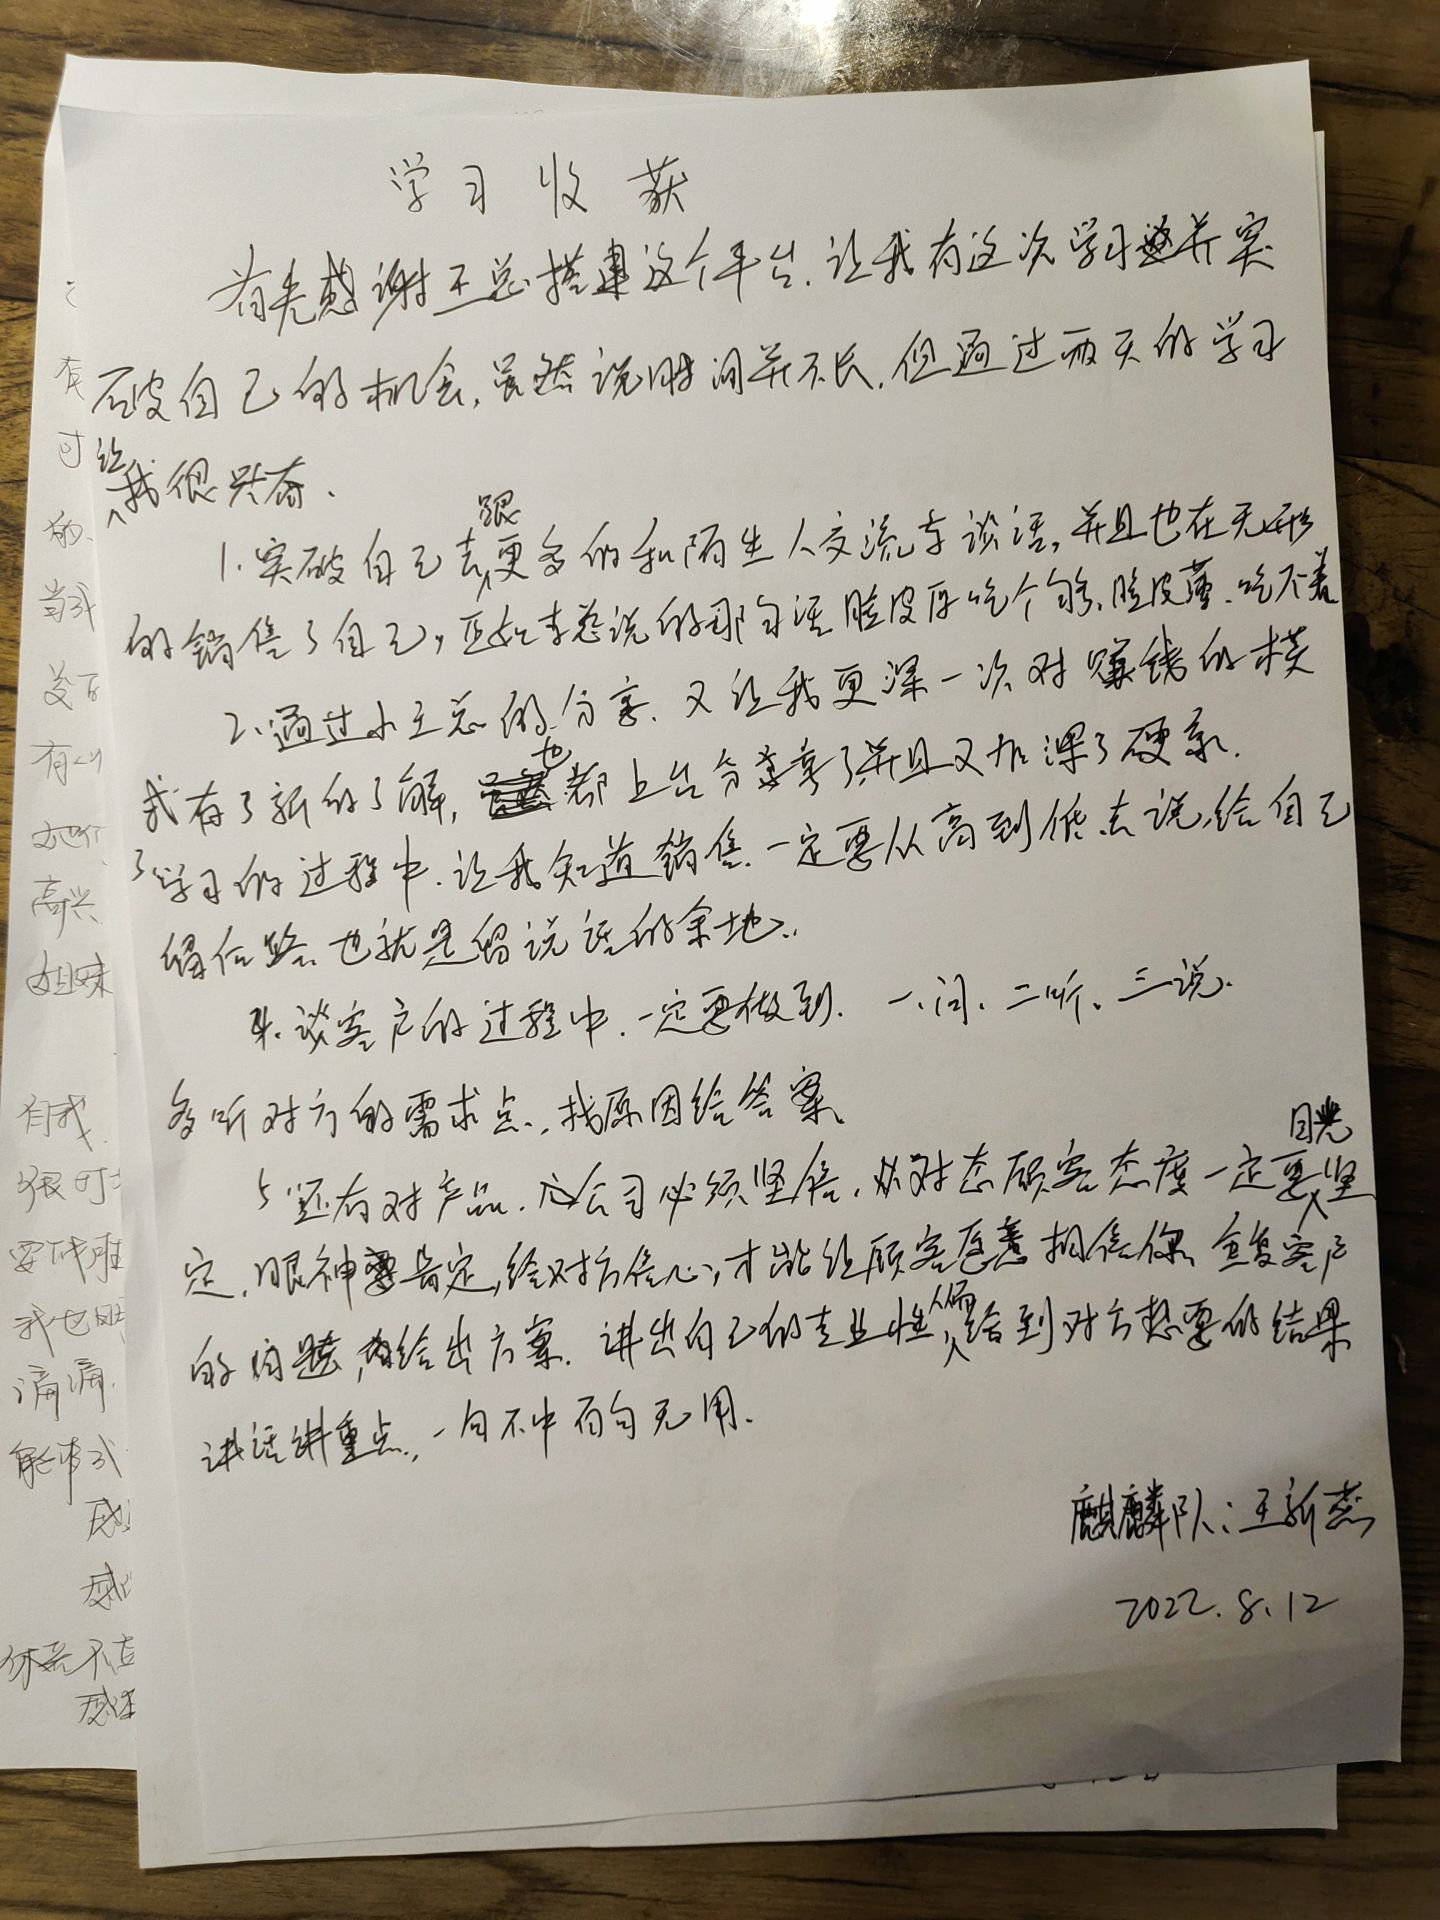 学习收获
首先感谢王总搭建这个平台.让我有这次学习并突
破自己的机会,虽然说时间并不长.但通过两天的学习
让我很兴奋.
1.突破自己去跟更多的和陌生人交流与谈话,并且也在无形
的销售了自己,正如李总说的那句话脸皮厚吃个够、脸皮薄.吃不着
2、通过小王总的分享.又让我更深一次对赚钱的模
式有了新的了解,也都上台分享了并且又加深了
3学习的过程中.让我知道销售.一定要从高到低去说,给自己
留后路、也就是留说话的余地.
4.谈客户的过程中.一定要做到. 一、问、二听、三说.
多听对方的需求点.,找原因给答案、
5还有对产品.公司必须坚信.对顾客态度一定要目光坚
定.眼神要肯定,给对方信心,才能让顾客愿意相信你、客户
的问题,给出方案.讲出自己的专业性,给到对方想要的结果
讲话讲重点.,一句不中百句无用.
麒麟队:王新燕
2022.8.12
有
时
当我
有
她们
高兴
姐妹
有我
我也
滴滴.
能
感
感
不
感